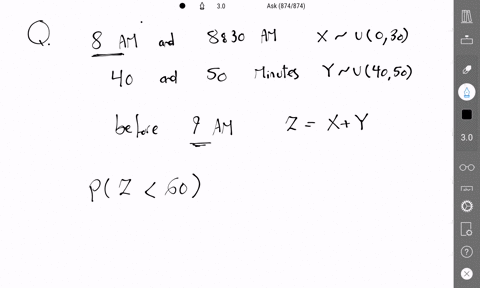 3.0 Ask (874/874)
Q. 8 AM and 8:30 AM X ~ U(0,30)
40 and 50 Minutes Y~U(40,50)
before 9 AM Z = X+Y
P(Z < 60)
3.0